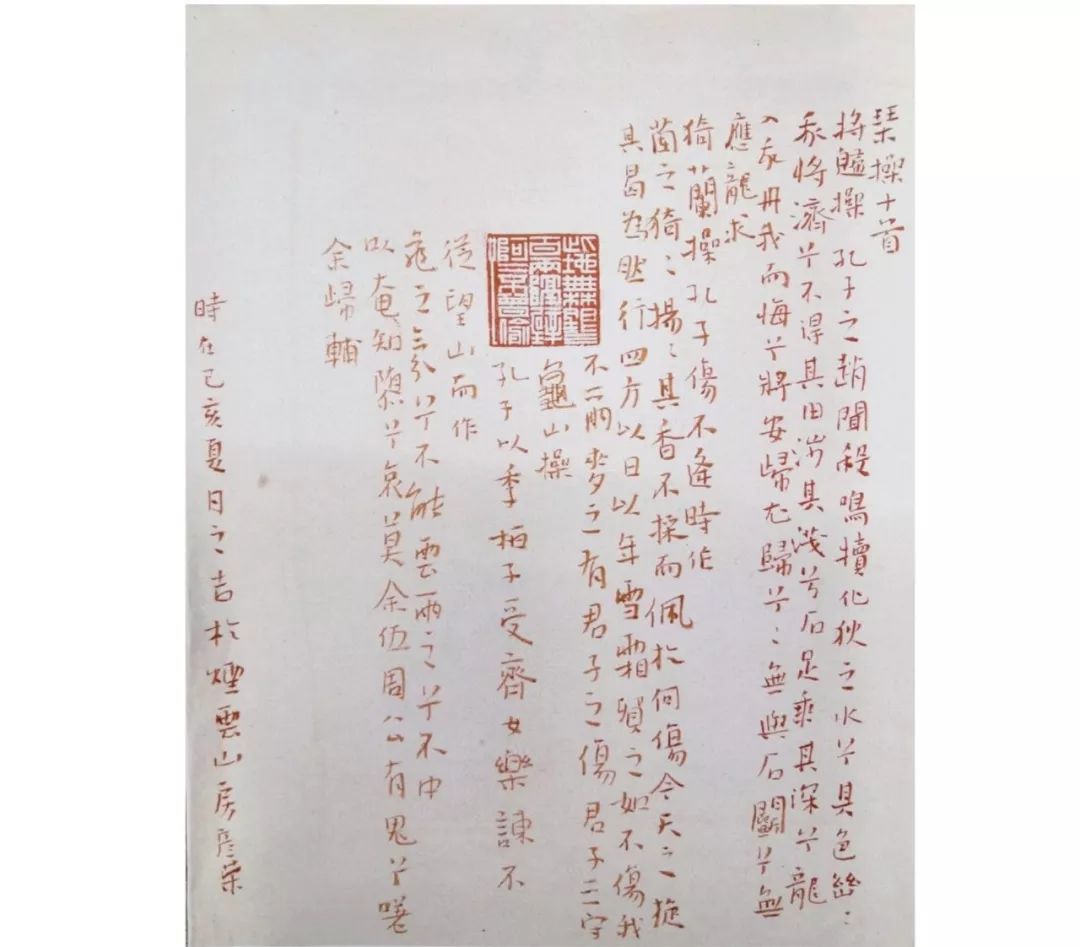 琹操十首
将龜操 孔子之趙聞殺鳴犢化狄之水兮其色幽〻
我将濟兮不得其由涉其淺兮石足乘其深兮龍
入我舟我而悔兮將安歸尤歸兮〻無與石鬪兮無
應龍求
猗蘭操孔子傷不逢時作
蘭之猗〻揚〻其香不採而佩於何傷今天之旋
其曷為然行四方以日以年雪霜貿之如不傷我
不爾麥之有君子之傷君子之守
龜山操
孔子以季柏子受齊女樂諫不
從望山而作
龜之氛兮不能雲雨之兮不中
以奄知隳兮哀莫余伍周公有鬼兮嗟
余歸輔
時在己亥夏日之吉於煙雲山房彦榮